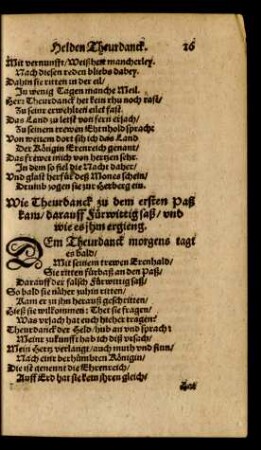 Helden Theurdanck. 26
Mit vernunfft/ Weißheit mancherley.
Nach diesen reden bliebs dabey.
Dahin sie ritten in der eil/
In wenig Tagen manche Meil.
Her: Theurdanck het kein rhu noch rast/
Zu seinr erwehlten eilet fast.
Das Land zu letst von fern ersach/
Zu seinem trewen Ehrnhold sprach:
Von weitem dort sih ich das Land
Der Königin Erenreich genant/
Das frewet mich von hertzen sehr.
In dem so fiel die Nacht daher/
Vnd glast herfür deß Mones schein/
Drumb zogen sie zur Herberg ein.
Wie Theurdanck zu dem ersten Paß
kam/ darauff Fürwittig saß/ vnd
wie es jhm ergieng.
DEm Theurdanck morgens tagt
es bald/
Mit seinem trewen Erenhald/
Sie ritten fürbaß an den Paß/
Darauff der falsch Fürwittig saß/
So bald sie näher zuhin ritten/
Kam er zu jhn herauß geschritten/
Hieß sie willkommen: Thet sie fragen/
Was vrsach hat euch hieher tragen?
Theurdanck der Held/ hub an vnd sprach:
Meinr zukunfft hab ich diß vrsach/
Mein Hertz verlangt/ auch muth vnd sinn/
Nach einr berhümbten Königin/
Die ist genennt die Ehrenreich/
Auff Erd hat sie kein jhren gleich/